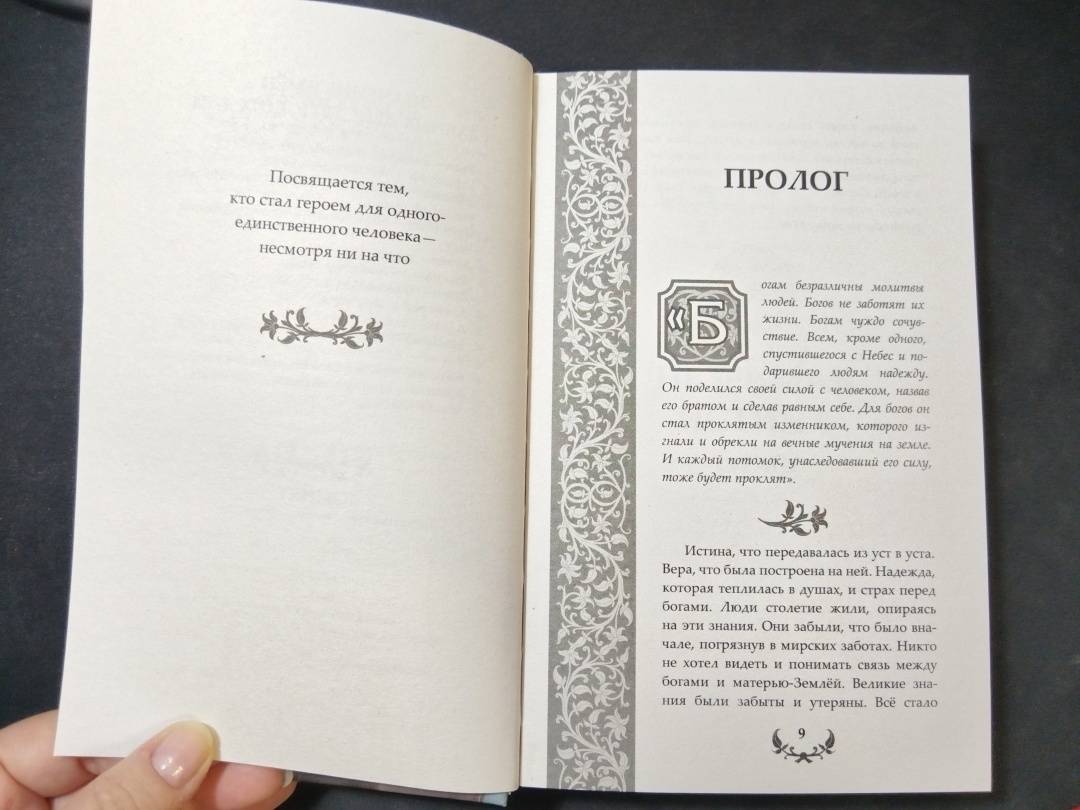 Посвящается тем,
кто стал героем для одного-
единственного человека—
несмотря ни на что
ПРОЛОГ
«Богам безразличны молитвы
людей. Богов не заботят их
жизни. Богам чуждо сочув-
ствие. Всем, кроме одного,
спустившегося с Небес и по-
дарившего людям надежду.
Он поделился своей силой с человеком, назвав
его братом и сделав равным себе. Для богов он
стал проклятым изменником, которого из-
гнали и обрекли на вечные мучения на земле.
И каждый потомок, унаследовавший его силу,
тоже будет проклят».
Истина, что передавалась из уст в уста.
Вера, что была построена на ней. Надежда,
которая теплилась в душах, и страх перед
богами. Люди столетие жили, опираясь
на эти знания. Они забыли, что было вна-
чале, погрязнув в мирских заботах. Никто
не хотел видеть и понимать связь между
богами и матерью-Землёй. Великие зна-
ния были забыты и утеряны. Всё стало
9